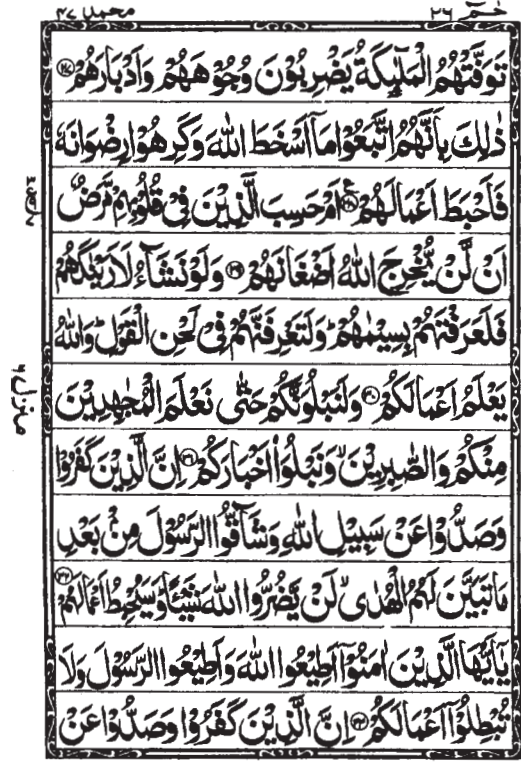 حٰمٓ ٢٦
محمد ٤٧
تَوَفَّتْهُمُ الْمَلٰٓئِكَةُ يَضْرِبُوْنَ وُجُوْهَهُمْ وَاَدْبَارَهُمْ ۝٢٧
ذٰلِكَ بِاَنَّهُمُ اتَّبَعُوْا مَاۤ اَسْخَطَ اللّٰهَ وَكَرِهُوْا رِضْوَانَهٗ
فَاَحْبَطَ اَعْمَالَهُمْ ۝٢٨ اَمْ حَسِبَ الَّذِيْنَ فِيْ قُلُوْبِهِمْ مَّرَضٌ
اَنْ لَّنْ يُّخْرِجَ اللّٰهُ اَضْغَانَهُمْ ۝٢٩ وَلَوْ نَشَآءُ لَاَرَيْنٰكَهُمْ
فَلَعَرَفْتَهُمْ بِسِيْمٰهُمْ ؕ وَلَتَعْرِفَنَّهُمْ فِيْ لَحْنِ الْقَوْلِ ؕ وَاللّٰهُ
يَعْلَمُ اَعْمَالَكُمْ ۝٣٠ وَلَنَبْلُوَنَّكُمْ حَتّٰى نَعْلَمَ الْمُجٰهِدِيْنَ
مِنْكُمْ وَالصّٰبِرِيْنَ ۙ وَنَبْلُوَا۟ اَخْبَارَكُمْ ۝٣١ اِنَّ الَّذِيْنَ كَفَرُوْا
وَصَدُّوْا عَنْ سَبِيْلِ اللّٰهِ وَشَآقُّوا الرَّسُوْلَ مِنْۢ بَعْدِ
مَا تَبَيَّنَ لَهُمُ الْهُدٰى ۙ لَنْ يَّضُرُّوا اللّٰهَ شَيْـًٔا ؕ وَسَيُحْبِطُ اَعْمَالَهُمْ ۝٣٢
يٰۤاَيُّهَا الَّذِيْنَ اٰمَنُوْۤا اَطِيْعُوا اللّٰهَ وَاَطِيْعُوا الرَّسُوْلَ وَلَا
تُبْطِلُوْۤا اَعْمَالَكُمْ ۝٣٣ اِنَّ الَّذِيْنَ كَفَرُوْا وَصَدُّوْا عَنْ
منزل ٦